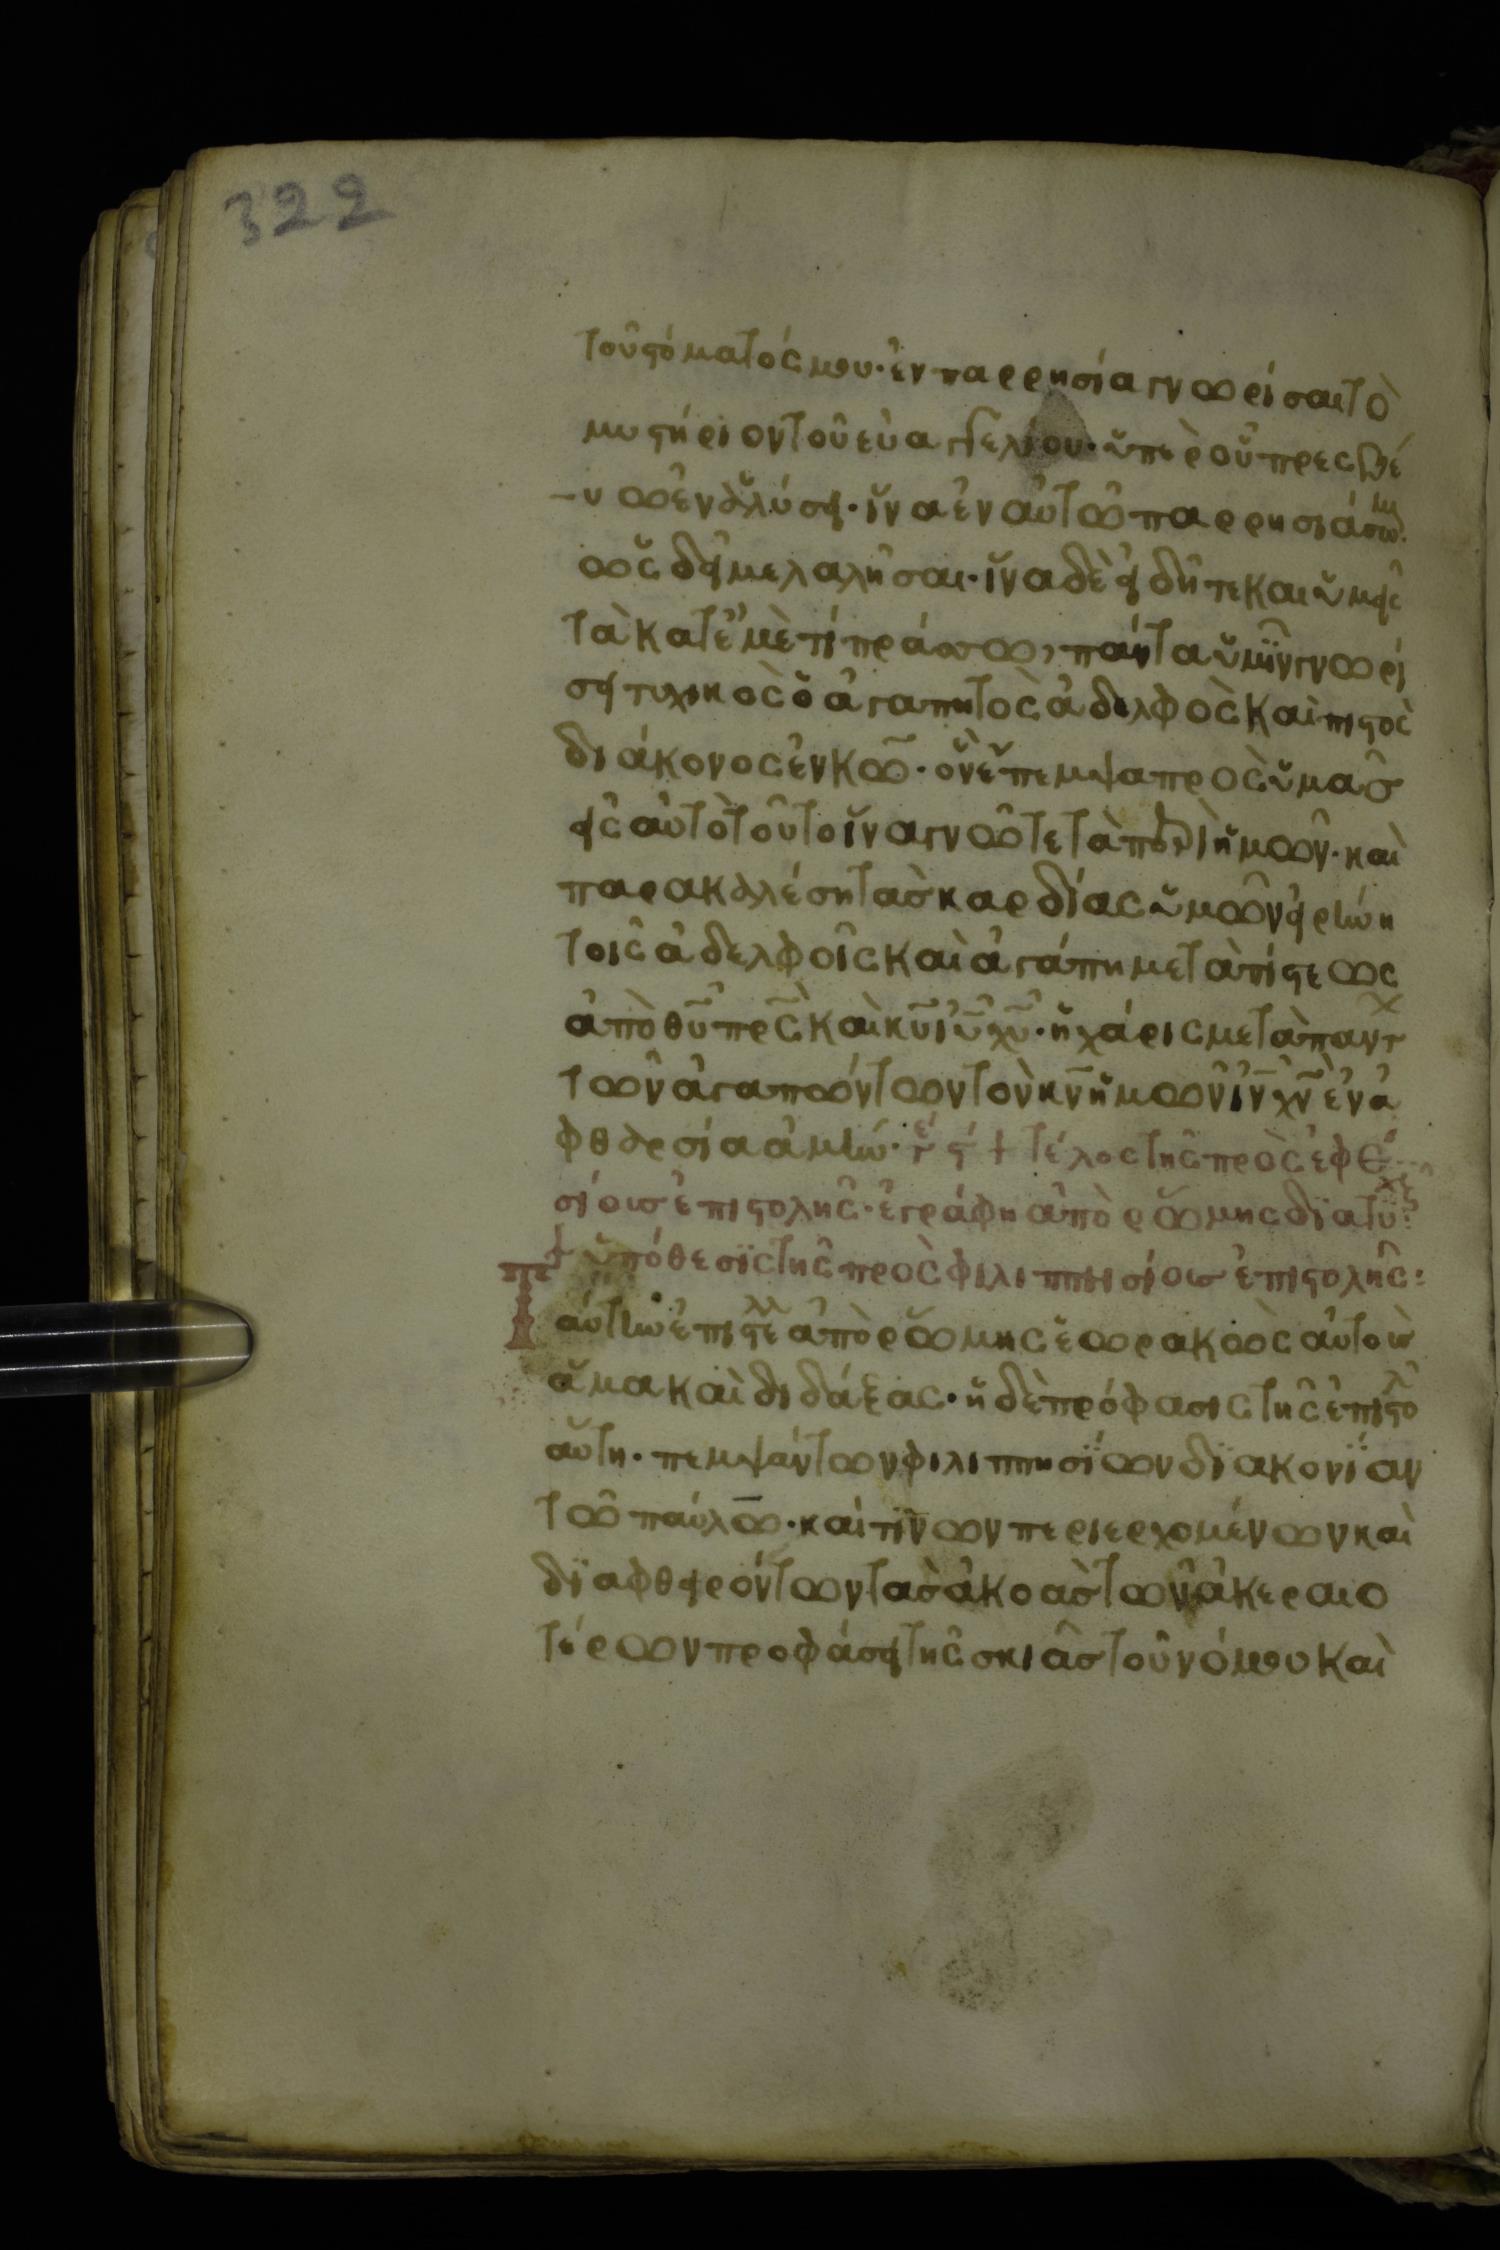 322
τοῦ στόματός μου· ἐν παρρησία γνωρίσαι τὸ
μυστήριον τοῦ εὐαγγελίου· ὑπὲρ οὗ πρεσβέ
υω ἐν ἁλύσει· ἵνα ἐν αὐτῶ παρρησιάσωμ
ὡς δεῖ με λαλῆσαι· ἵνα δὲ εἰδῆτε καὶ ὑμεῖς
τὰ κατ' ἐμὲ τί πράσσω, πάντα ὑμῖν γνωρί
σει τυχικὸς ὁ ἀγαπητὸς ἀδελφὸς καὶ πιστὸς
διάκονος ἐν κω̅· ὃν ἔπεμψα πρὸς ὑμᾶς
εἰς αὐτὸ τοῦτο ἵνα γνῶτε τὰ περὶ ἡμῶν· καὶ
παρακαλέση τὰς καρδίας ὑμῶν εἰρήνη
τοῖς ἀδελφοῖς καὶ ἀγάπη μετὰ πίστεως
ἀπὸ θυ̅ πρς̅ καὶ κυ̅ ιυ̅ χυ̅· ἡ χάρις μετὰ παντ
τῶν ἀγαπώντων τὸν κν̅ ἡμῶν ιν̅ χν̅ ἐν ἀ
φθαρσία ἀμήν· † τέλος τῆς πρὸς ἐφε
σίοις ἐπιστολῆς· ἐγράφη ἀπὸ ῥώμης διὰ τυχ
† ὑπόθεσις τῆς πρὸς φιλιππησίοις ἐπιστολῆς:
Ταύτην ἐπιστελλ ἀπὸ ῥώμης ἑωρακὼς αὐτοὺς
ἅμα καὶ διδάξας· ἡ δὲ πρόφασις τῆς ἐπιστολ
αὕτη· πεμψάντων φιλιππησίων διακονίαν
τῶ παύλω· καί τινων περιερχομένων καὶ
διαφθειρόντων τὰς ἀκοὰς τῶν ἀκεραιο
τέρων προφάσει τῆς σκιᾶς τοῦ νόμου καὶ